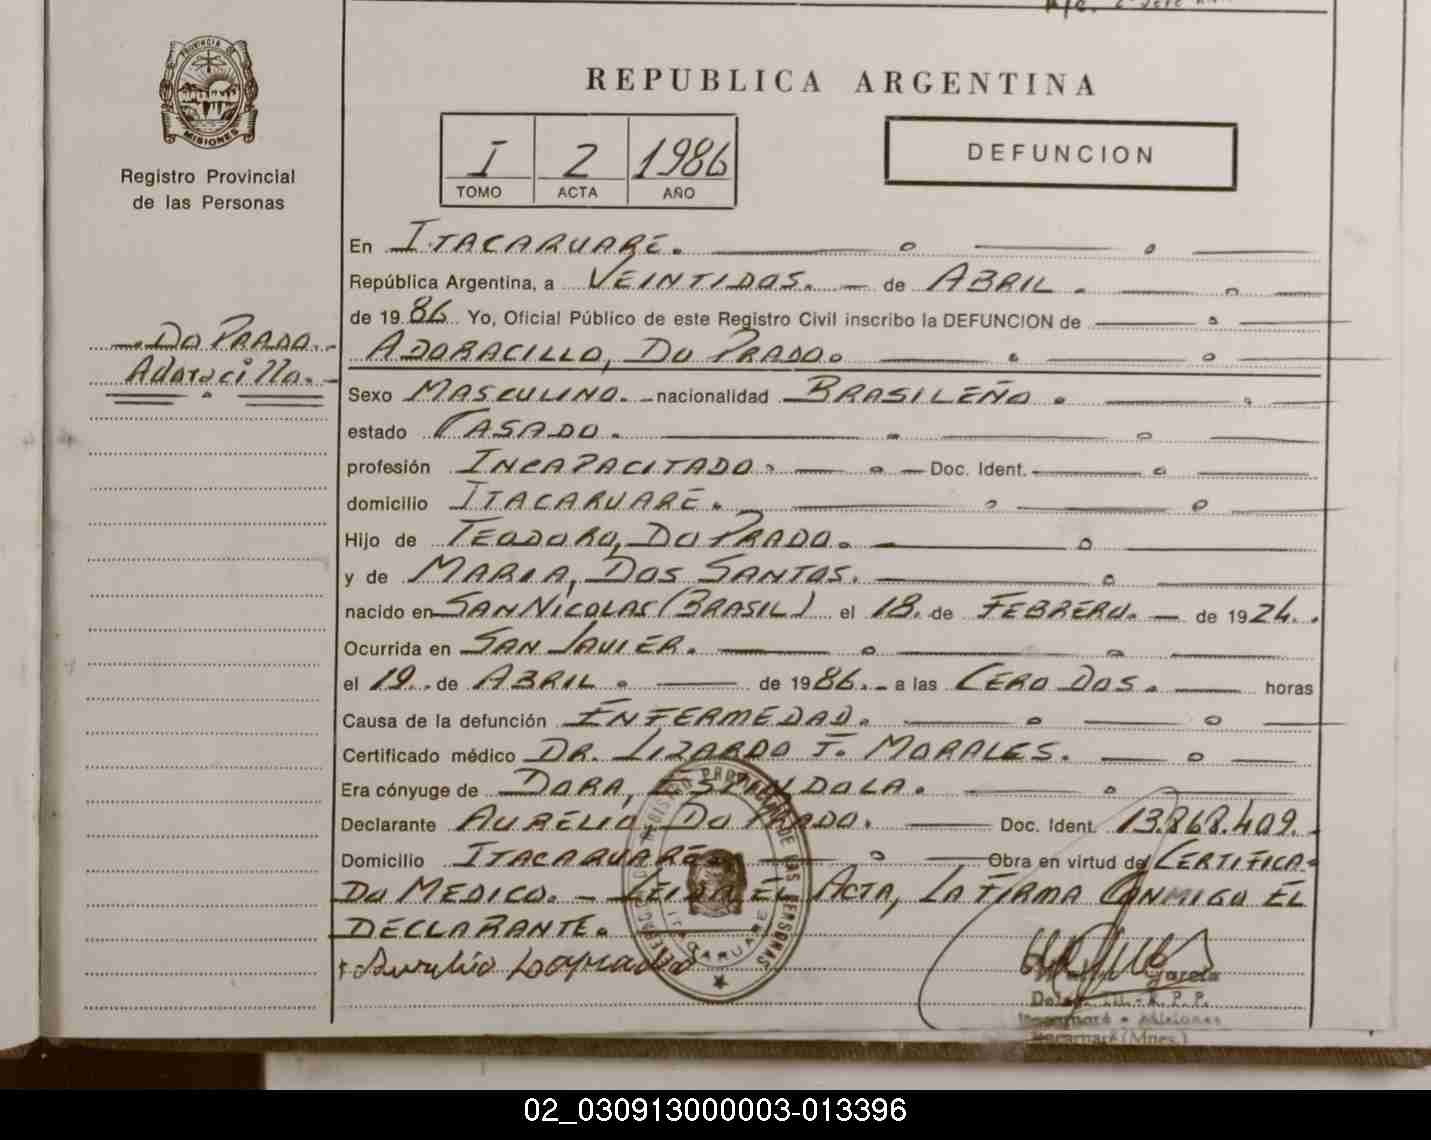 REPUBLICA ARGENTINA
PROVINCIA DE
MISIONES
Registro Provincial
de las Personas
I 2 1986
TOMO ACTA AÑO
DEFUNCION
Do Prado.
Adoracillo.
En ITACARUARÉ.
República Argentina, a VEINTIDOS. de ABRIL.
de 1986 Yo, Oficial Público de este Registro Civil inscribo la DEFUNCION de
ADORACILLO, DO PRADO.
Sexo MASCULINO. nacionalidad BRASILEÑO.
estado CASADO.
profesión INCAPACITADO. Doc. Ident.
domicilio ITACARUARÉ.
Hijo de TEODORO, DO PRADO.
y de MARIA, DOS SANTOS.
nacido en SAN NICOLAS (BRASIL) el 18. de FEBRERO. de 1924.
Ocurrida en SAN JAVIER.
el 19. de ABRIL. de 1986. a las CERO DOS. horas
Causa de la defunción ENFERMEDAD.
Certificado médico DR. LIZARDO J. MORALES.
Era cónyuge de DORA, ESPINDOLA.
Declarante AURELIO DO PRADO. Doc. Ident. 13.868.409.
Domicilio ITACARUARÉ. Obra en virtud de CERTIFICA-
DO MEDICO. - LEIDA EL ACTA, LA FIRMA CONMIGO EL
DECLARANTE.
REGISTRO PROVINCIAL DE LAS PERSONAS
ITACARUARE
Aurelio
García
R. P. P.
Misiones
(Mnes.)
02_030913000003-013396